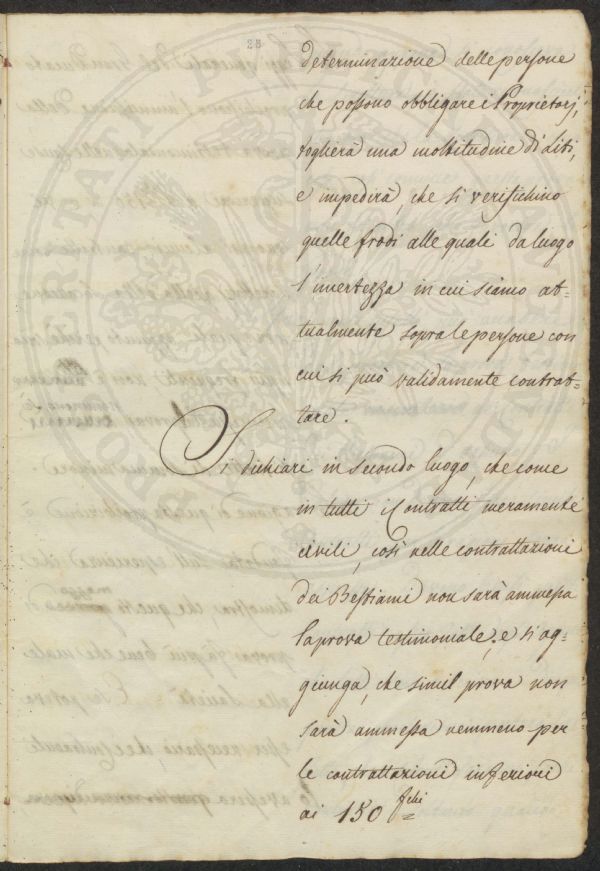 28
determinazione delle persone
che possono obbligare i Proprietarj,
toglierà una moltitudine di Liti,
e impedirà, che si verifichino
quelle frodi alle quali da luogo
l'incertezza in cui siamo at=
tualmente sopra le persone con
cui si può validamente contrat=
tare.
Si dichiari in secondo luogo, che come
in tutti i Contratti meramente
civili, così nelle contrattazioni
dei Bestiami non sarà ammessa
la prova testimoniale, e si ag=
giunga, che simil prova non
sarà ammessa nemmeno per
le contrattazioni inferiori
ai 150 fchi